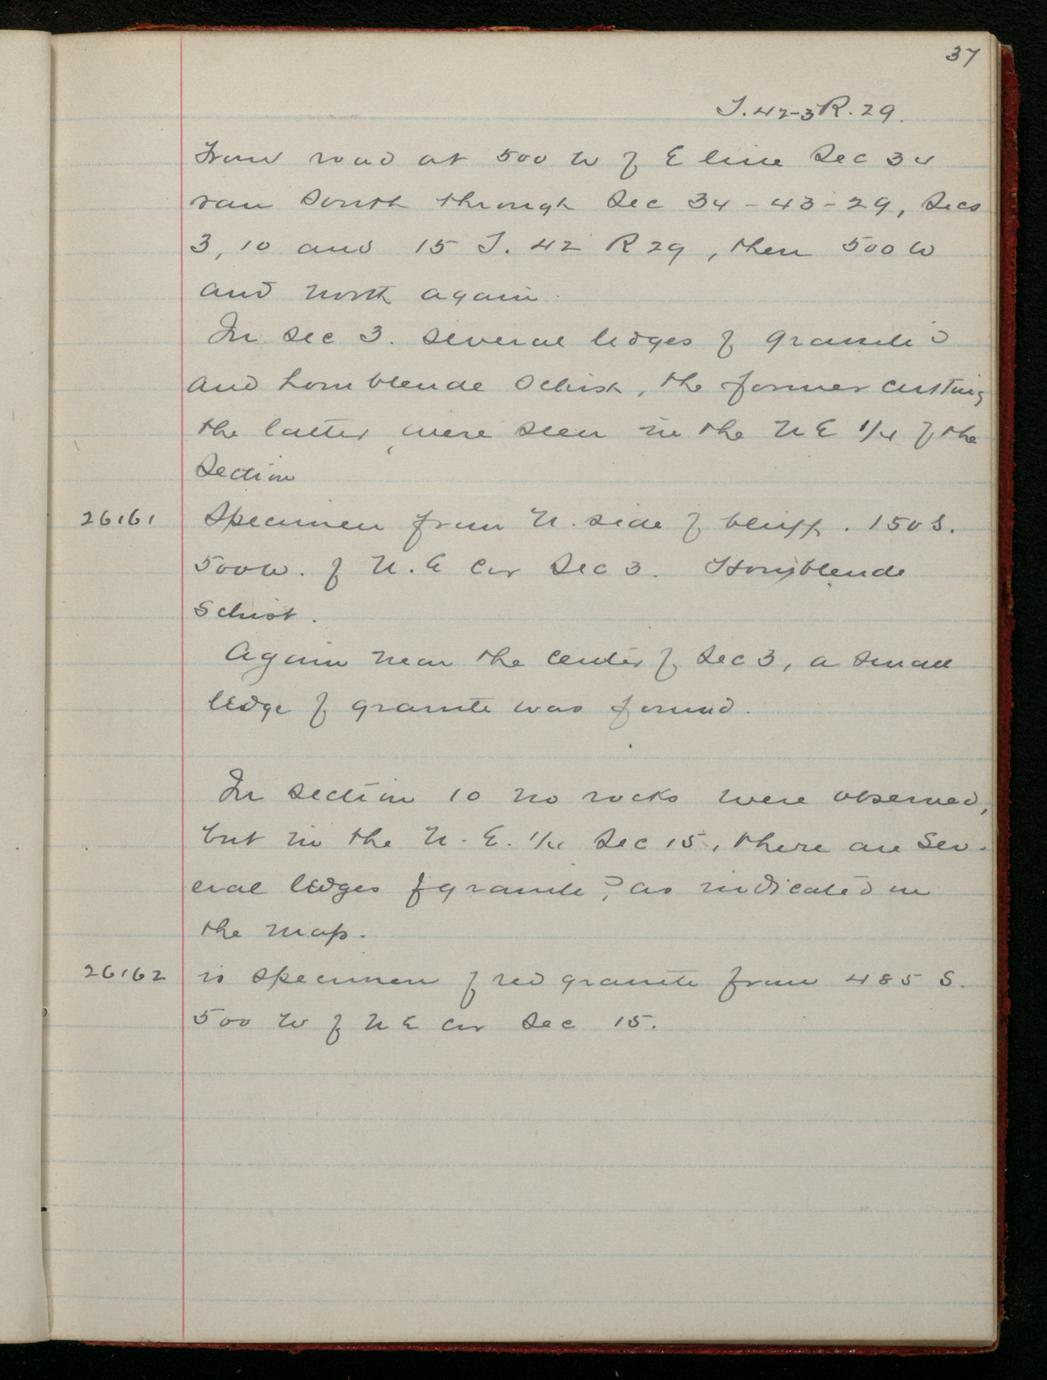 37
T. 42-3 R. 29.
From road at 500 W of E line Sec 34
ran South through Sec 34 - 43 - 29, Secs
3, 10 and 15 T. 42 R 29, then 500 W
and north again.
In Sec 3. several ledges of granite
and hornblende Schist, the former cutting
the latter, were seen in the N E 1/4 of the
Section
26161 Specimen from N. side of bluff. 150 S.
500 W. of N. E Cor Sec 3. Hornblende
Schist.
Again near the center of Sec 3, a small
ledge of granite was found.
In section 10 no rocks were observed,
but in the N. E. 1/4 Sec 15, there are Sev-
eral ledges of granite ?, as indicated on
the map.
26162 is specimen of red granite from 485 S.
500 W of N E Cor Sec 15.